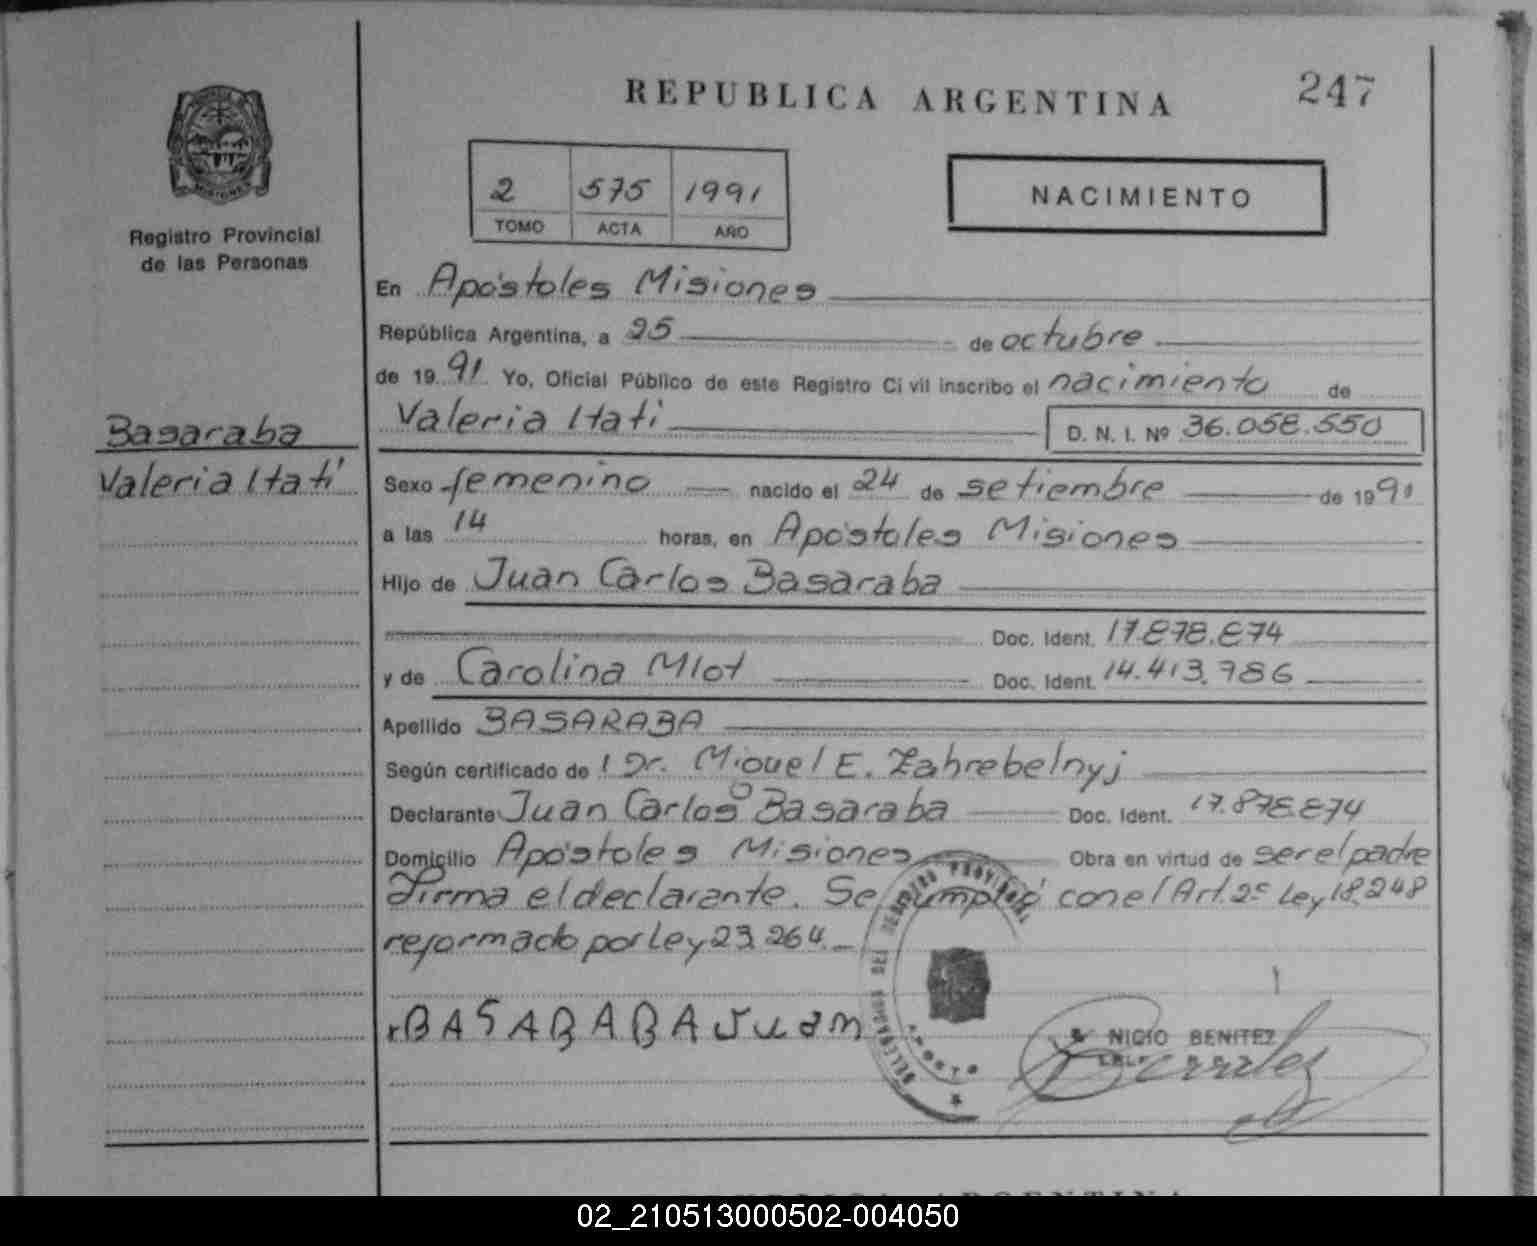 REPUBLICA ARGENTINA
247
2 575 1991
TOMO ACTA AÑO
NACIMIENTO
MISIONES
Registro Provincial
de las Personas
Basaraba
Valeria Itatí
En Apóstoles Misiones
República Argentina, a 25 de octubre
de 19 91 Yo, Oficial Público de este Registro Civil inscribo el nacimiento de
Valeria Itatí
D. N. I. Nº 36.058.550
Sexo femenino nacido el 24 de setiembre de 19 91
a las 14 horas, en Apóstoles Misiones
Hijo de Juan Carlos Basaraba
Doc. Ident. 17.878.874
y de Carolina Mlot Doc. Ident. 14.413.786
Apellido BASARABA
Según certificado de l Dr. Miguel E. Zahrebelnyj
Declarante Juan Carlos Basaraba Doc. Ident. 17.878.874
Domicilio Apóstoles Misiones Obra en virtud de ser el padre
Firma el declarante. Se cumplió con el Art. 2º Ley 18.248
reformado por Ley 23.264.
BASARABA Juan
NICIO BENITEZ
REGISTRO PROVINCIAL
REPUBLICA ARGENTINA
02_210513000502-004050